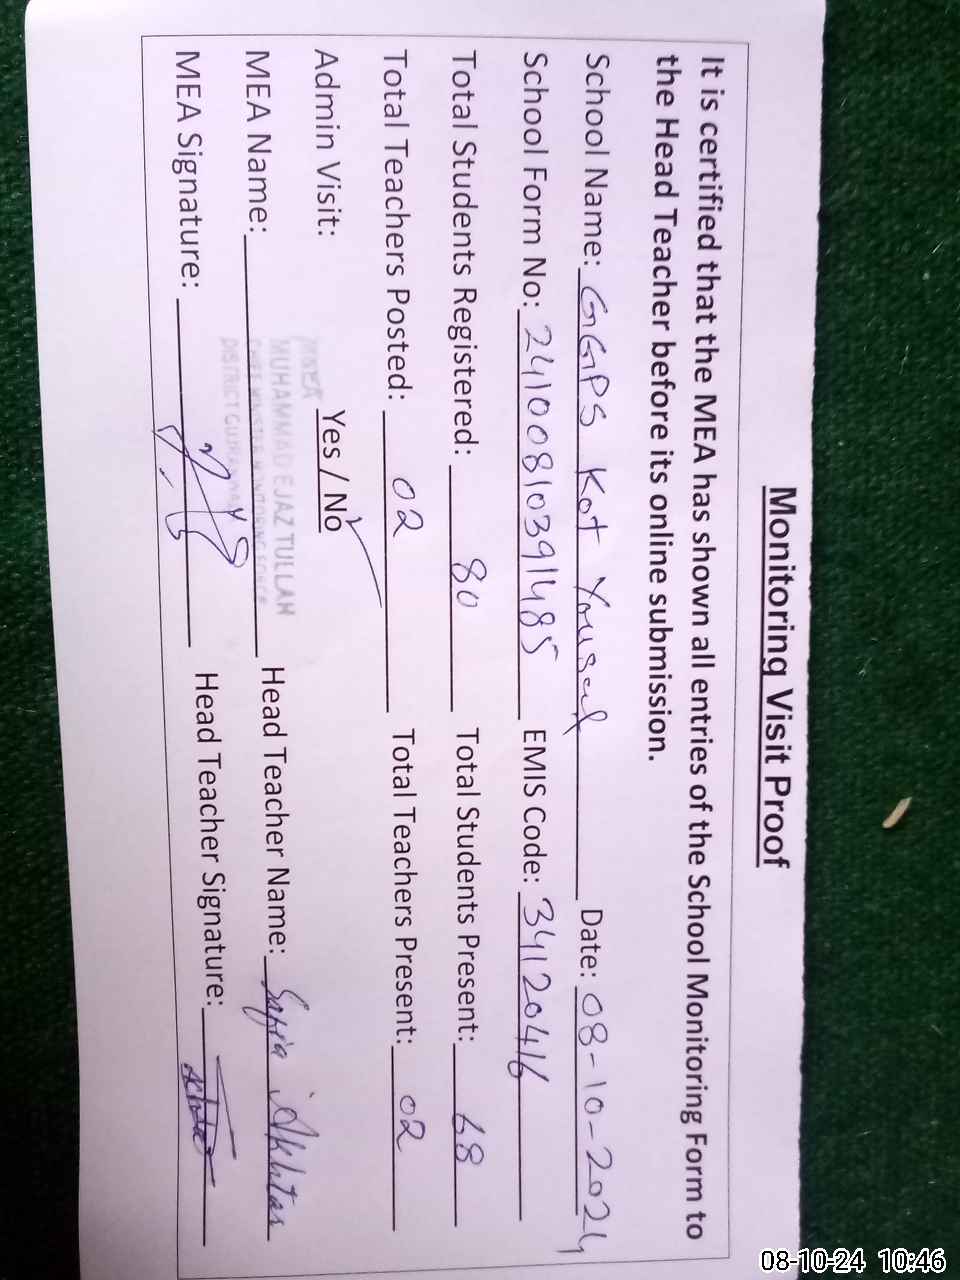 Monitoring Visit Proof
It is certified that the MEA has shown all entries of the School Monitoring Form to
the Head Teacher before its online submission.
School Name: GGPS Kot Yousaf Date: 08-10-2024
School Form No: 24100810391485 EMIS Code: 34120416
Total Students Registered: 80 Total Students Present: 68
Total Teachers Posted: 02 Total Teachers Present: 02
Admin Visit: Yes / No
MEA Name: Head Teacher Name: Safia Akhtar
MUHAMMAD EJAZ TULLAH
CHIEF MINISTER MONITORING FORCE
DISTRICT
MEA Signature: Head Teacher Signature:
08-10-24 10:46